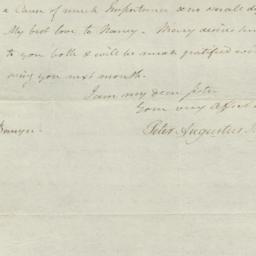 a Cause of much Importance & no small de
My best love to Nancy. Mary desires her
to you both & will be much gratified wi
ing you next month.
I am my dear Sister
Your very Affect
Peter Augustus